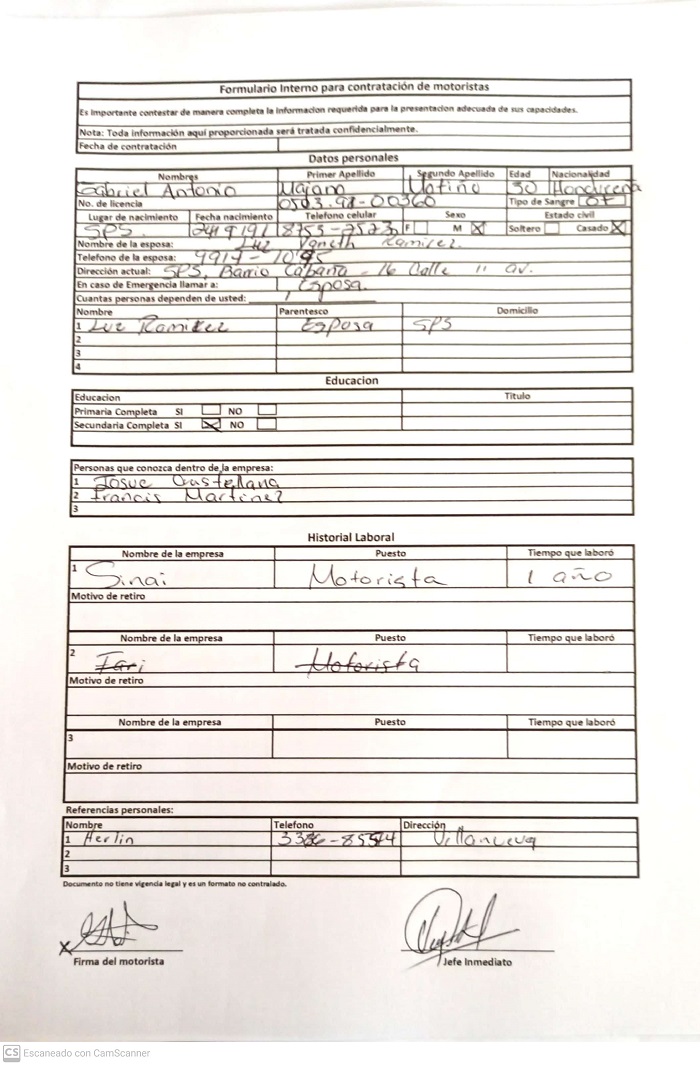 Formulario Interno para contratación de motoristas
Es Importante contestar de manera completa la Informacion requerida para la presentacion adecuada de sus capacidades.
Nota: Toda información aquí proporcionada será tratada confidencialmente.
Fecha de contratación
Datos personales
Nombres Primer Apellido Segundo Apellido Edad Nacionalidad
Gabriel Antonio 30 Hondureña
No. de licencia Tipo de Sangre O+
Lugar de nacimiento Fecha nacimiento Telefono celular Sexo Estado civil
SPS. F M X Soltero Casado X
Nombre de la esposa: Luz Yaneth Ramirez.
Telefono de la esposa: 9917-1095
Dirección actual: SPS, Barrio Cabaña - 16 Calle 11 av.
En caso de Emergencia llamar a: Esposa.
Cuantas personas dependen de usted: 1
Nombre Parentesco Domicilio
1 Luz Ramirez Esposa SPS
2
3
4
Educacion
Educacion Titulo
Primaria Completa SI NO
Secundaria Completa SI X NO
Personas que conozca dentro de la empresa:
1 Josue Castellana
2 Francis Martinez
3
Historial Laboral
Nombre de la empresa Puesto Tiempo que laboró
1 Sinai Motorista 1 año
Motivo de retiro
Nombre de la empresa Puesto Tiempo que laboró
2 Motorista
Motivo de retiro
Nombre de la empresa Puesto Tiempo que laboró
3
Motivo de retiro
Referencias personales:
Nombre Telefono Dirección
1 Herlin Villanueva
2
3
Documento no tiene vigencia legal y es un formato no contralado.
X
Firma del motorista Jefe Inmediato
CS Escaneado con CamScanner